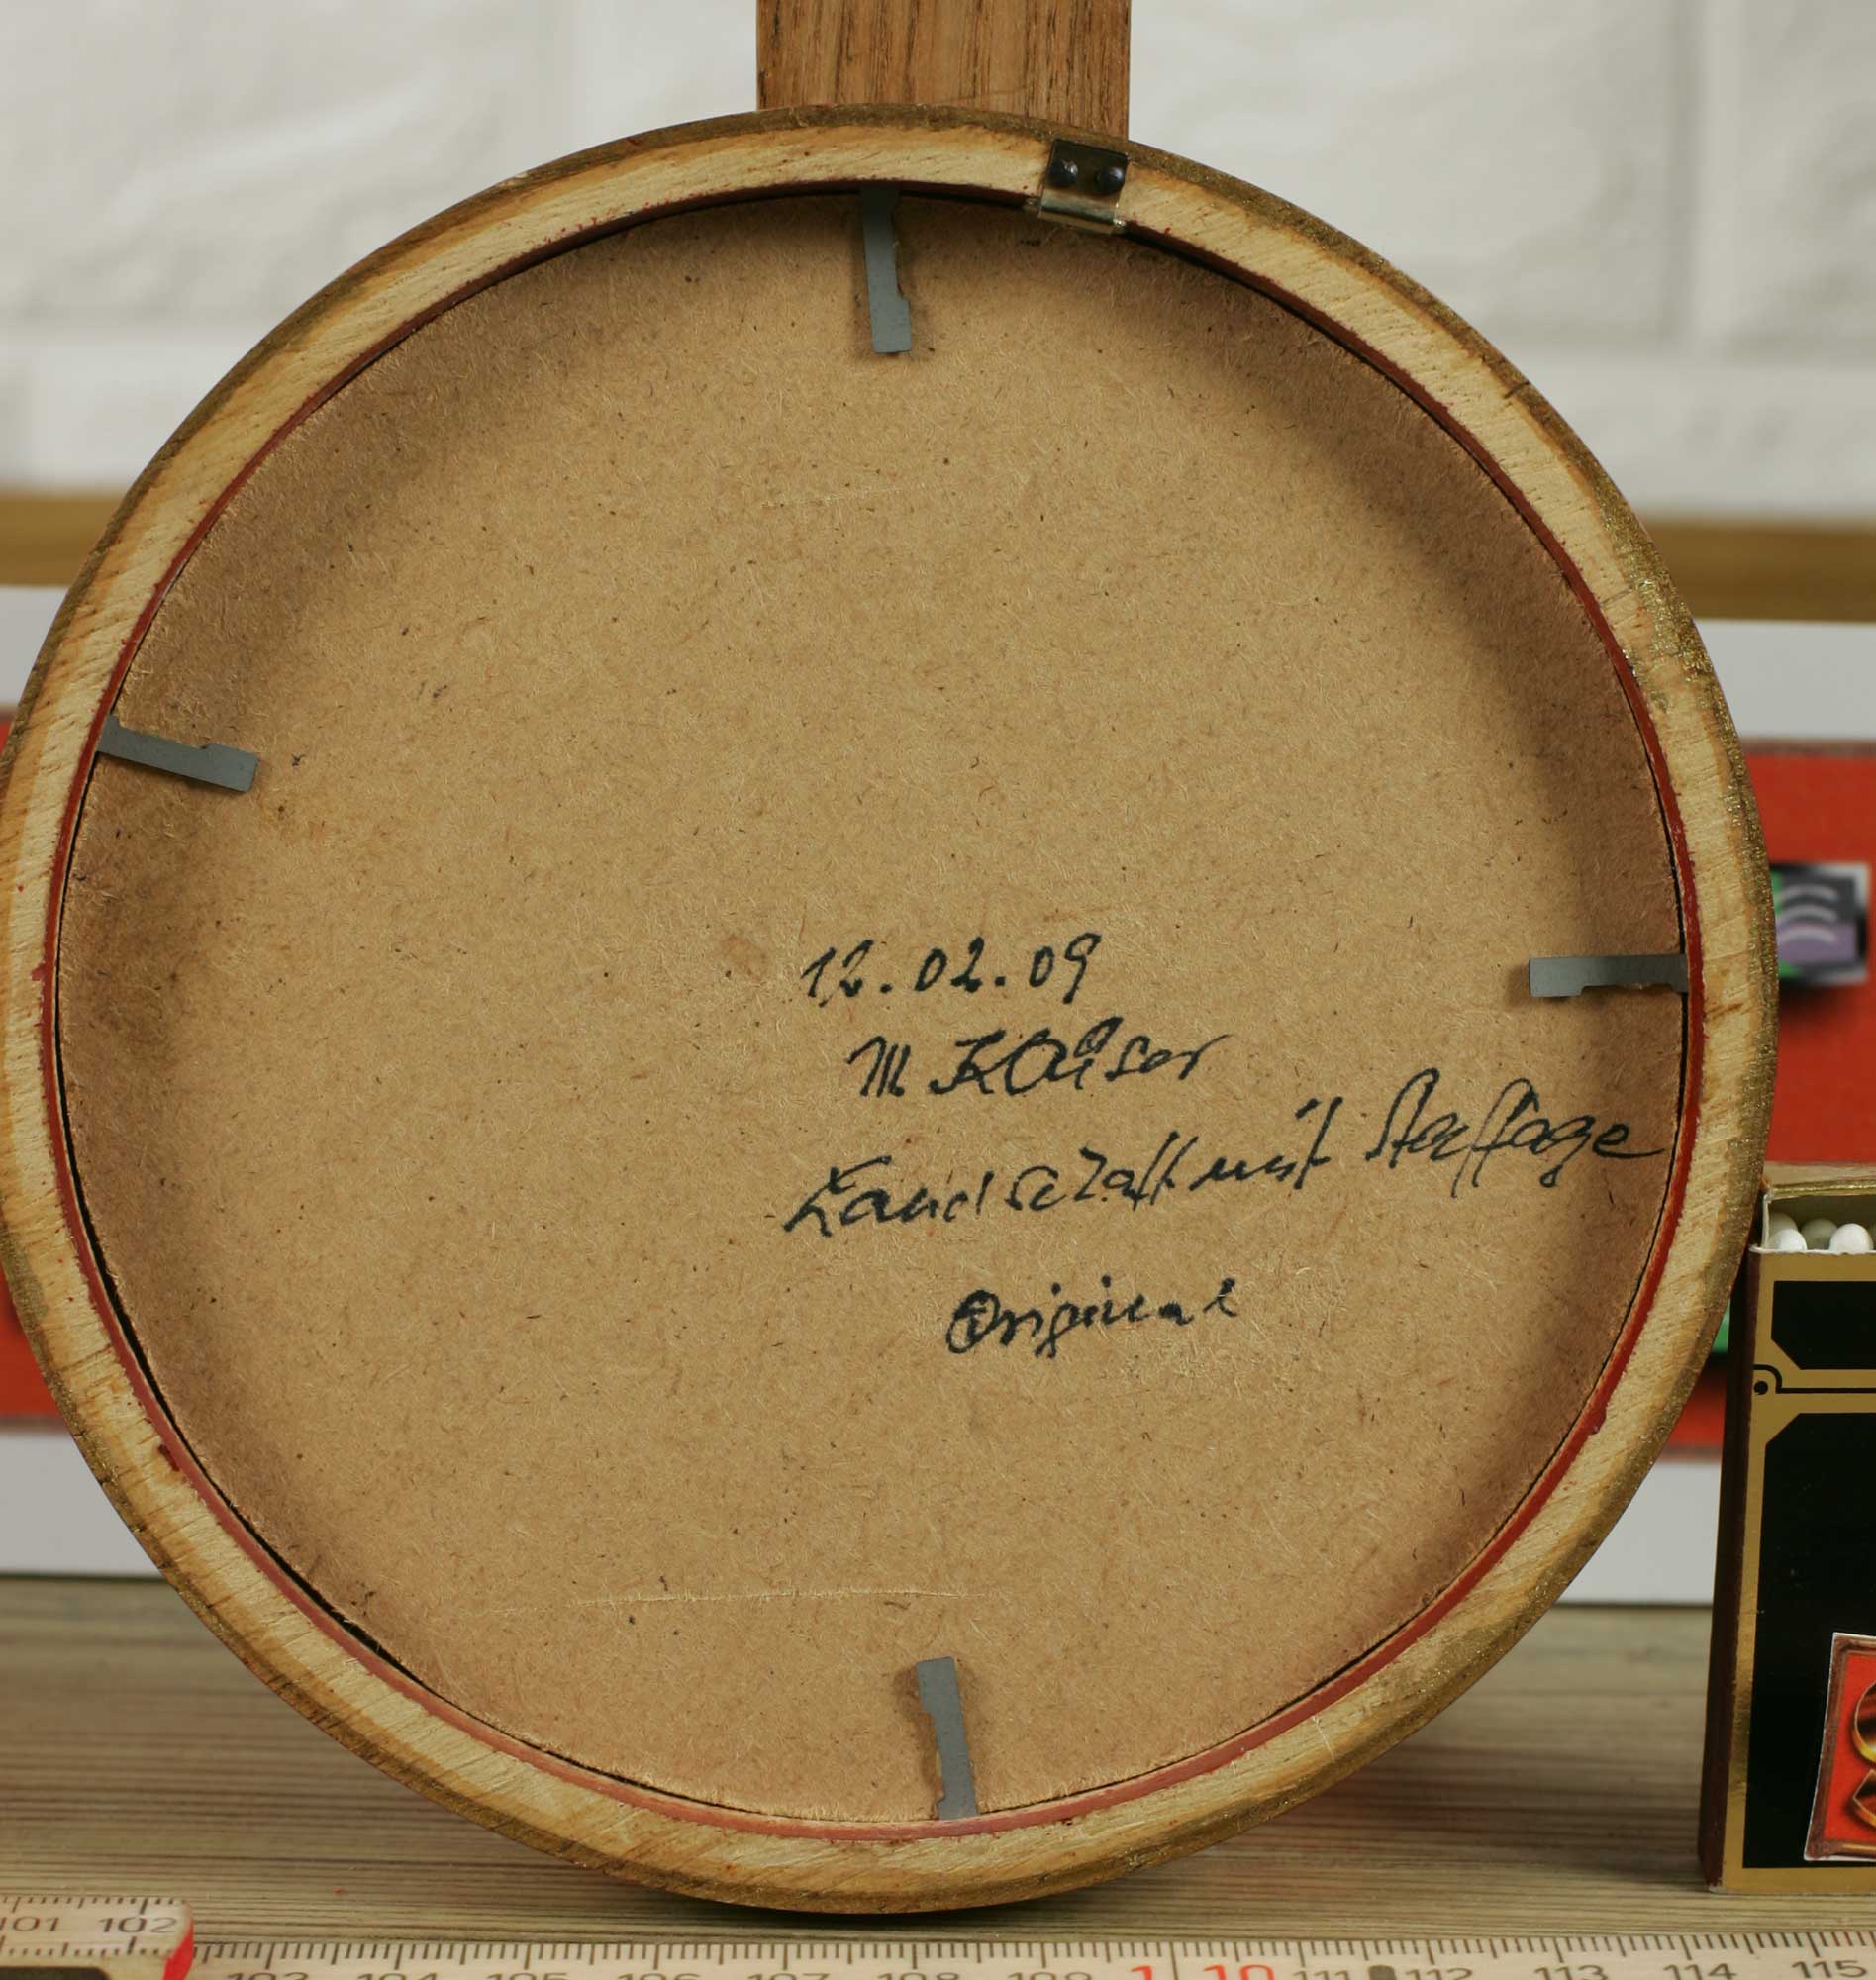 12.02.09
Landschaft mit Staffage
Original
101 102
103 104 105 106 107 108 109 1 10 111 112 113 114 115